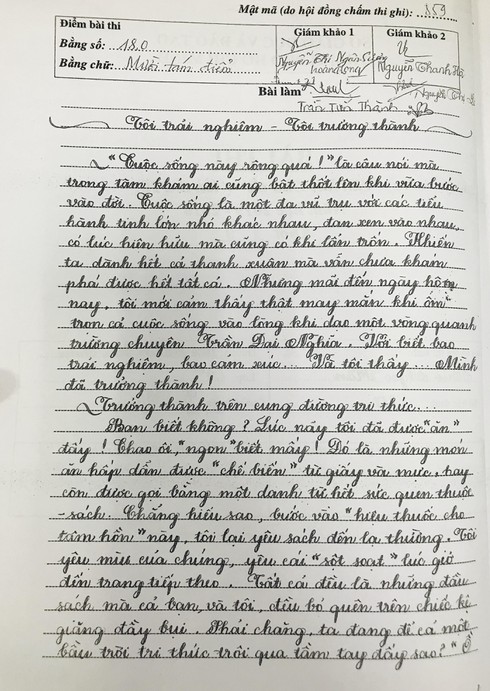 Mật mã (do hội đồng chấm thi ghi): 359
Điểm bài thi
Bằng số: 18.0
Bằng chữ: Mười tám điểm
Giám khảo 1
Nguyễn Thị Ngân
Giám khảo 2
Nguyễn Thanh
Bài làm
Trần Tiến Thành
Tôi trải nghiệm - Tôi trưởng thành
"Cuộc sống này rộng quá!" là câu nói mà
trong tâm khảm ai cũng bật thốt lên khi vừa bước
vào đời. Cuộc sống là một đa vũ trụ với các tiểu
hành tinh lớn nhỏ khác nhau, đan xen vào nhau,
có lúc hiện hữu mà cũng có khi lẩn trốn. Khiến
ta dành hết cả thanh xuân mà vẫn chưa khám
phá được hết tất cả. Nhưng mãi đến ngày hôm
nay, tôi mới cảm thấy thật may mắn khi ôm
trọn cả cuộc sống vào lòng khi dạo một vòng quanh
trường chuyên Trần Đại Nghĩa. Với biết bao
trải nghiệm, bao cảm xúc... Và tôi thấy... Mình
đã trưởng thành!
Trưởng thành trên cung đường tri thức...
Bạn biết không? Lúc nãy tôi đã được "ăn"
đấy! Chao ôi, "ngon" biết mấy! Đó là những món
ăn hấp dẫn được "chế biến" từ giấy và mực, hay
còn được gọi bằng một danh từ hết sức quen thuộc
- sách. Chẳng hiểu sao, bước vào "hiệu thuốc cho
tâm hồn" này, tôi lại yêu sách đến lạ thường. Tôi
yêu mùi của chúng, yêu cái "sột soạt" lúc giở
đến trang tiếp theo. Tất cả đều là những đầu
sách mà cả bạn, và tôi, đều bỏ quên trên chiếc kệ
giăng đầy bụi. Phải chăng, ta đang để cả một
bầu trời tri thức trôi qua tầm tay đấy sao? "Ồ